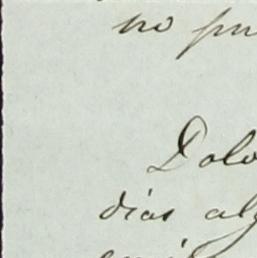 no pu
Dolo
dias alg